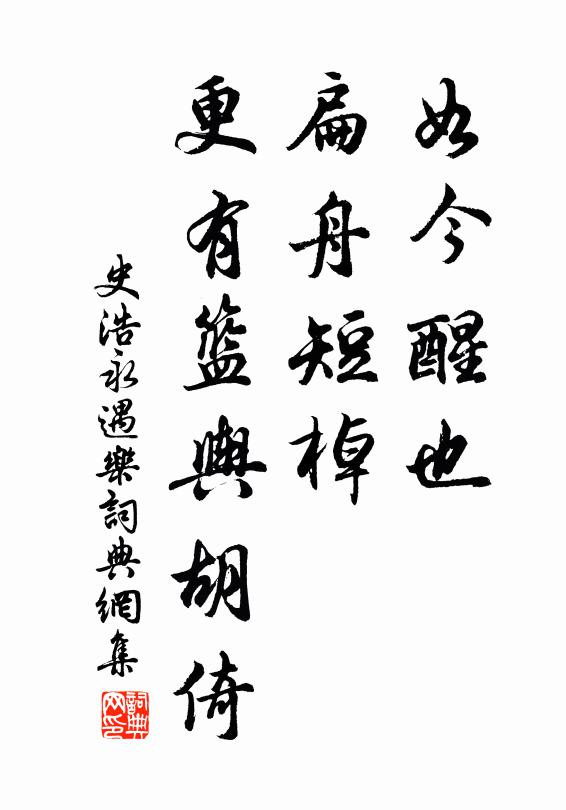 如今醒也
扁舟短棹
更有籃輿胡倚
史浩永遇樂詞典網集
詞典網印